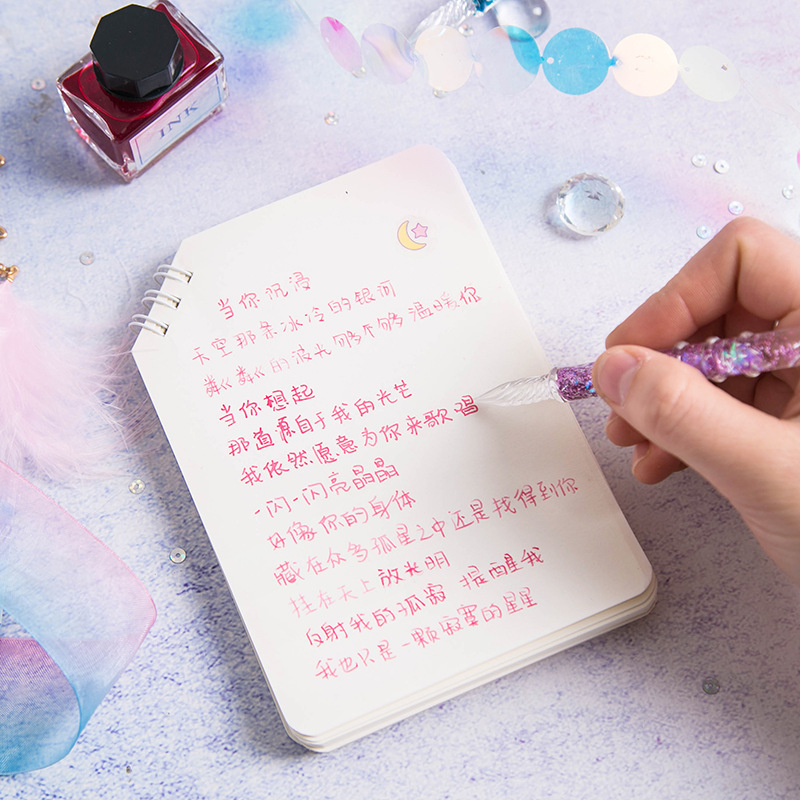 INK
当你沉浸
天空那条冰冷的银河
粼粼的波光够不够温暖你
当你想起
那道源自于我的光芒
我依然愿意为你来歌唱
一闪一闪亮晶晶
好像你的身体
藏在众多孤星之中还是找得到你
挂在天上放光明
反射我的孤寂 提醒我
我也只是一颗寂寞的星星